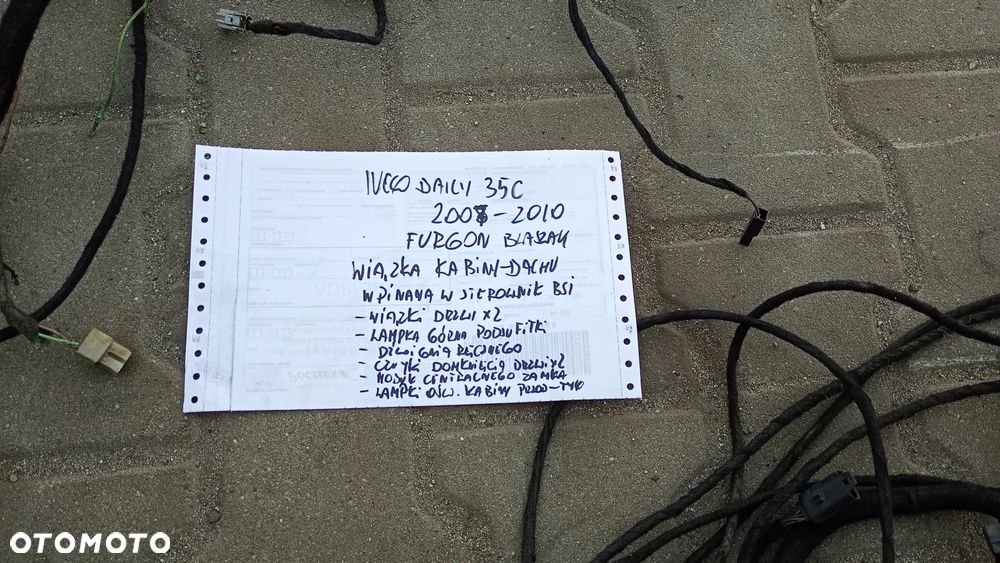 IVECO DAILY 35C
2007-2010
FURGON BLASZAK
WIĄZKA KABINY-DACHU
WPINANA W STEROWNIK BSI
- WIĄZKI DRZWI X2
- LAMPKA GÓRNA PODSUFITKI
- DŹWIGNIA RĘCZNEGO
- CZUJKI DOMKNIĘCIA DRZWI X2
- MODUŁ CENTRALNEGO ZAMKA
- LAMPKI OŚW. KABINY PRZÓD-TYŁ
OTOMOTO